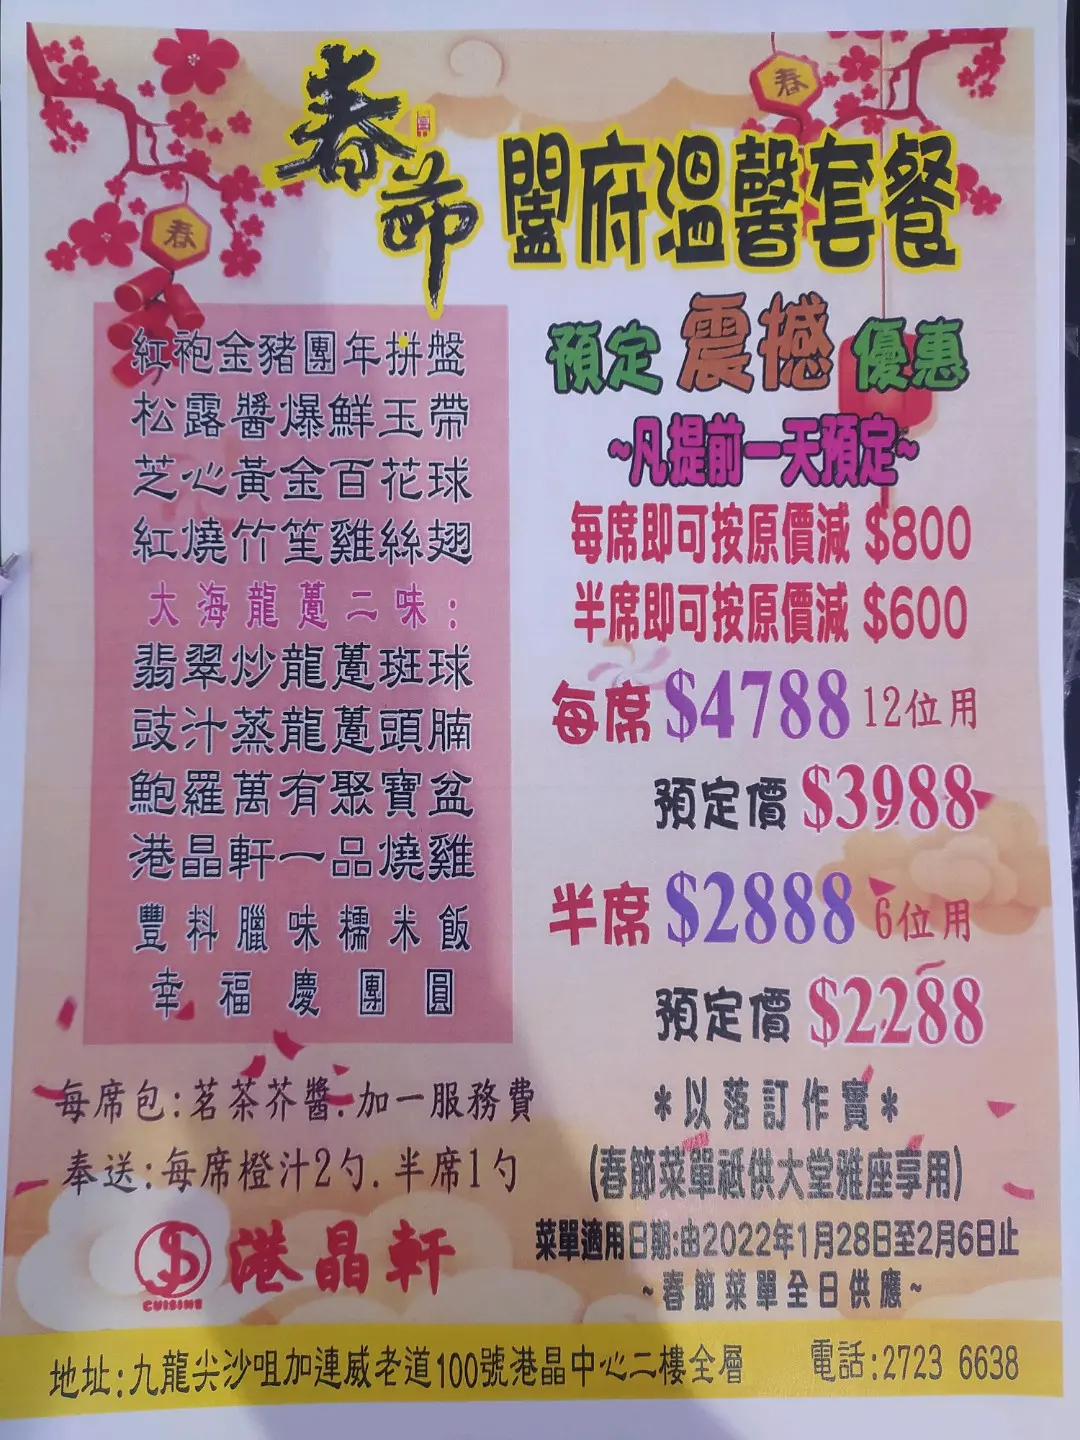 春節 闔府溫馨套餐
春
春
紅袍金豬團年拼盤
松露醬爆鮮玉帶
芝心黃金百花球
紅燒竹笙雞絲翅
大海龍躉二味:
翡翠炒龍躉斑球
豉汁蒸龍躉頭腩
鮑羅萬有聚寶盆
港晶軒一品燒雞
豐料臘味糯米飯
幸福慶團圓
每席包:茗茶芥醬.加一服務費
奉送:每席橙汁2勺.半席1勺
預定震撼優惠
~凡提前一天預定~
每席即可按原價減 $800
半席即可按原價減 $600
每席 $4788 12位用
預定價 $3988
半席 $2888 6位用
預定價 $2288
*以落訂作實*
(春節菜單祗供大堂雅座享用)
菜單適用日期:由2022年1月28日至2月6日止
~春節菜單全日供應~
港晶軒
CUISINE
地址:九龍尖沙咀加連威老道100號港晶中心二樓全層 電話:2723 6638